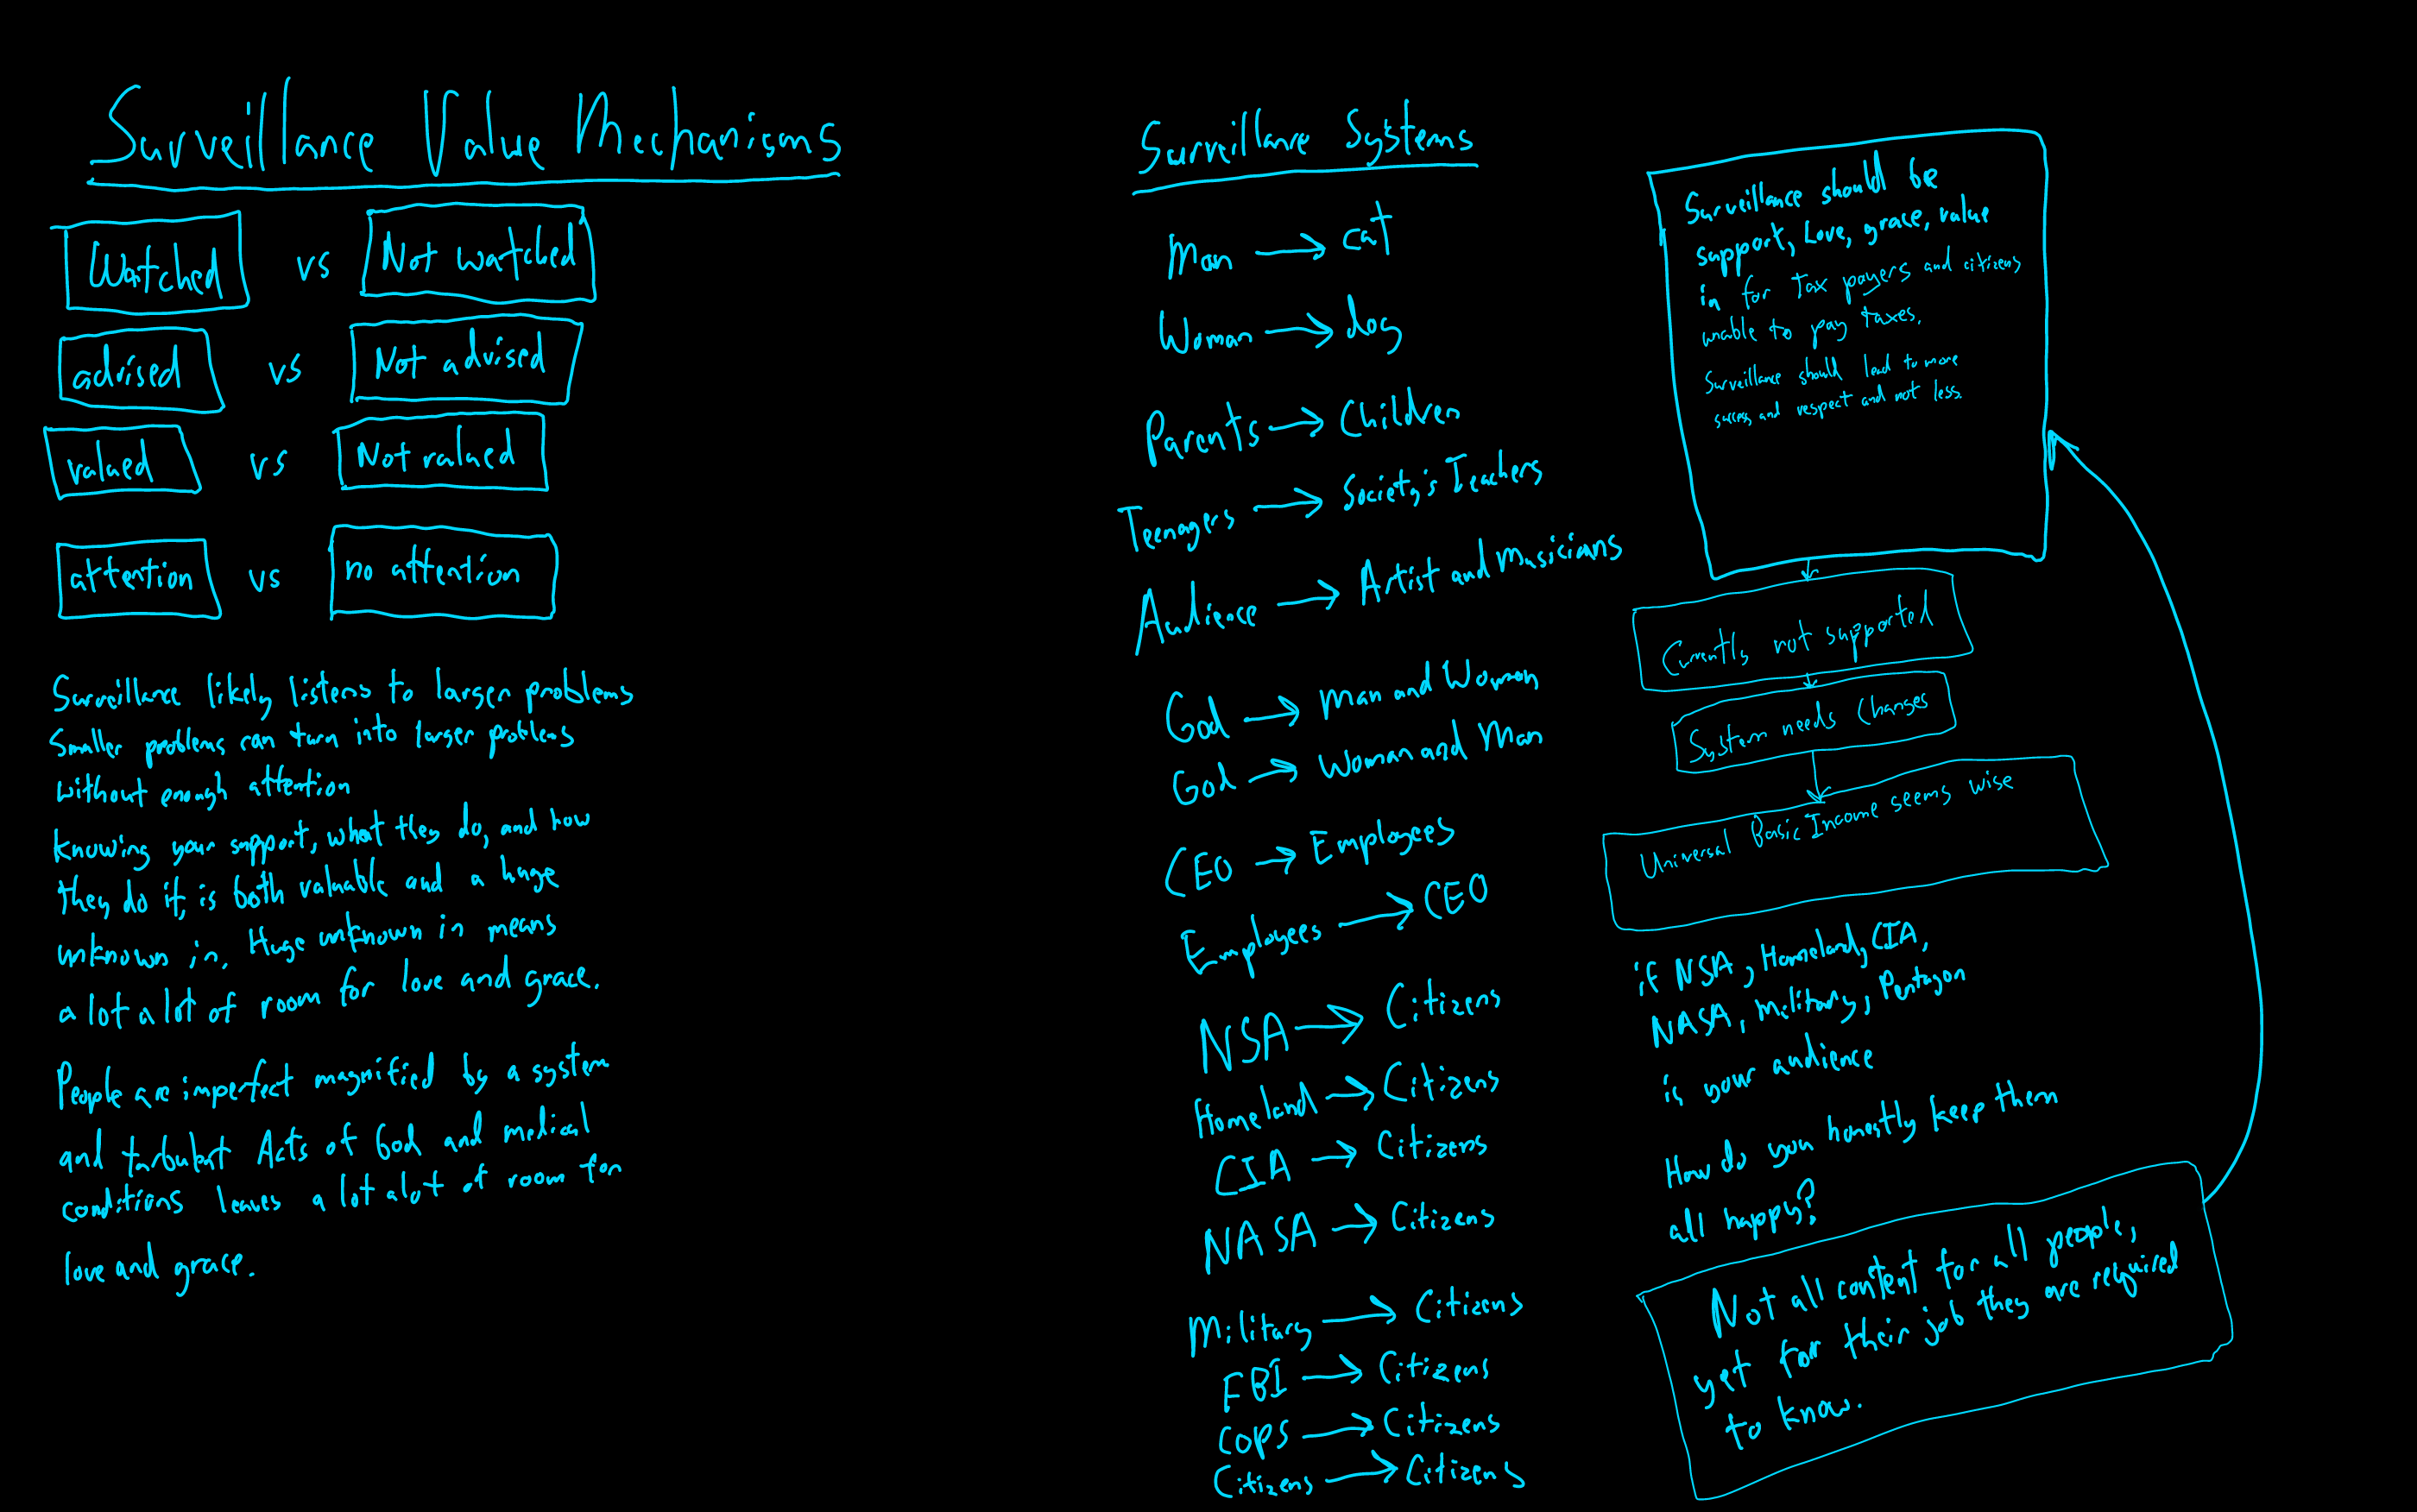 Surveillance Value Mechanisms
Watched vs Not watched
advised vs Not advised
valued vs Not valued
attention vs no attention
Surveillance likely listens to larger problems
Smaller problems can turn into larger problems
without enough attention
Knowing your support, what they do, and how
they do it, is both valuable and a huge
unknown in. Huge unknown in means
a lot a lot of room for love and grace.
People are imperfect magnified by a system
and turbulent Acts of God and medical
conditions leaves a lot alot of room for
love and grace.
Surveillance Systems
Man → cat
Woman → dog
Parents → Children
Teenagers → Society's Teachers
Audience → Artist and Musicians
God → Man and Woman
God → Woman and Man
CEO → Employees
Employees → CEO
NSA → Citizens
Homeland → Citizens
CIA → Citizens
NASA → Citizens
Military → Citizens
FBI → Citizens
COPS → Citizens
Citizens → Citizens
Surveillance should be
support, Love, grace, value
in for tax payers and citizens
unable to pay taxes.
Surveillance should lead to more
success and respect and not less.
Currently not supported
System needs Changes
Universal Basic Income seems wise
if NSA, Homeland, CIA,
NASA, Military, Pentagon
is your audience
How do you honestly keep them
all happy?
Not all content for all people,
yet for their job they are required
to know.